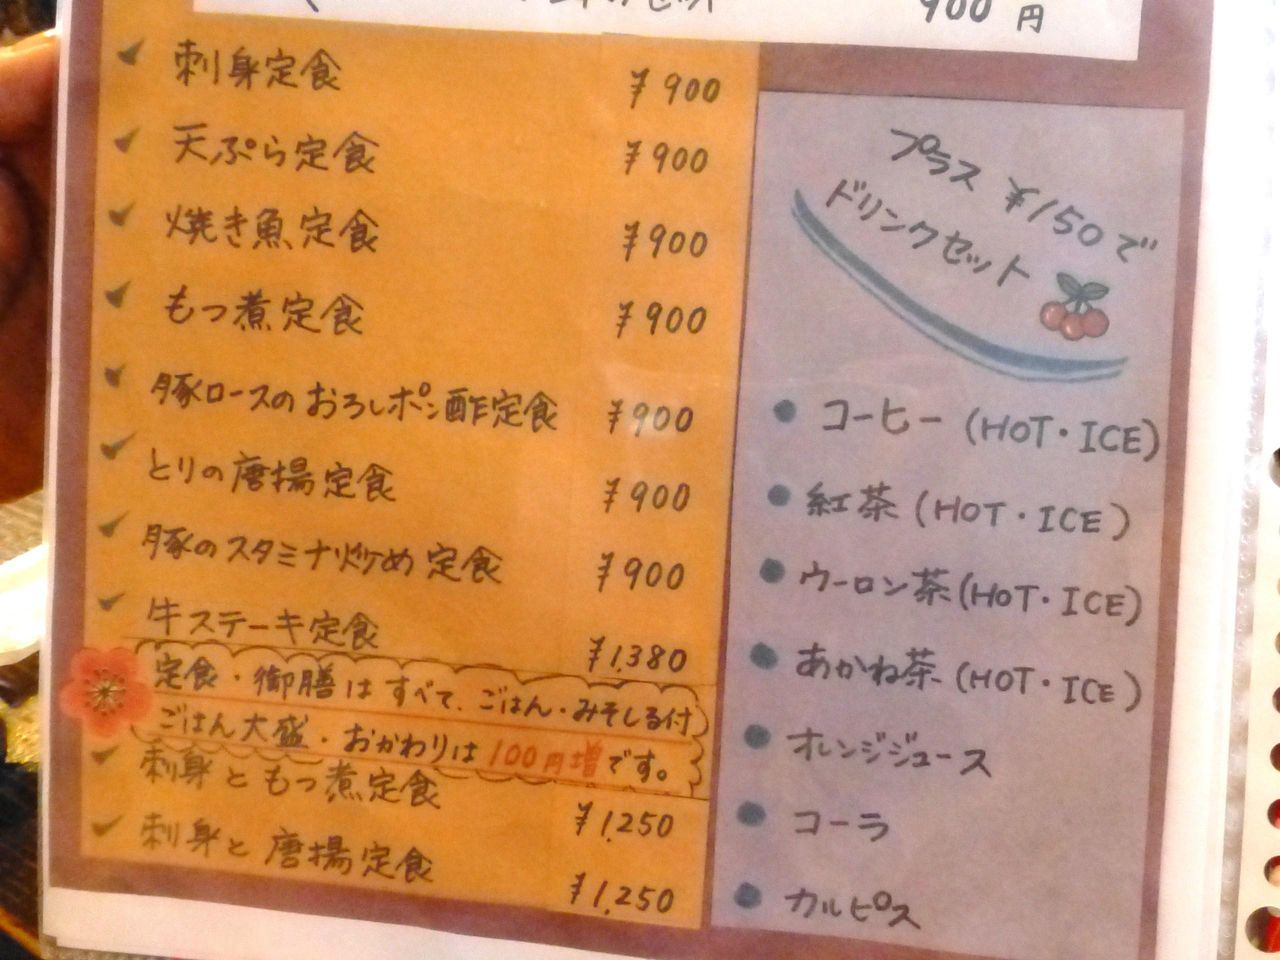 900円
刺身定食 ¥900
天ぷら定食 ¥900
焼き魚定食 ¥900
もつ煮定食 ¥900
豚ロースのおろしポン酢定食 ¥900
とりの唐揚定食 ¥900
豚のスタミナ炒め定食 ¥900
牛ステーキ定食 ¥1,380
定食・御膳はすべて、ごはん・みそしる付
ごはん大盛・おかわりは100円増です。
刺身ともつ煮定食 ¥1,250
刺身と唐揚定食 ¥1,250
プラス ¥150で
ドリンクセット
コーヒー (HOT・ICE)
紅茶 (HOT・ICE)
ウーロン茶 (HOT・ICE)
あかね茶 (HOT・ICE)
オレンジジュース
コーラ
カルピス